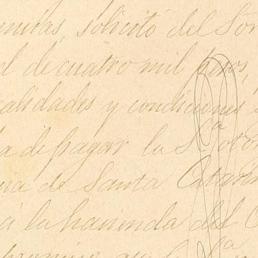 solicitó del Sor
de cuatro mil pesos,
alidades y condiciones
de pagar la S.ra
de Santa Catarina
á la hacienda del